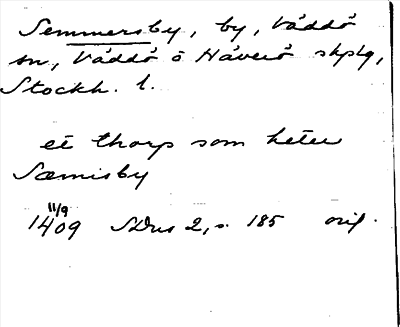 Semmersby, by, Väddö
sn, Väddö o Häverö skplg,
Stockh. l.
et thorp som heter
Sæmisby
11/9
1409 SDns 2, s. 185 orig.